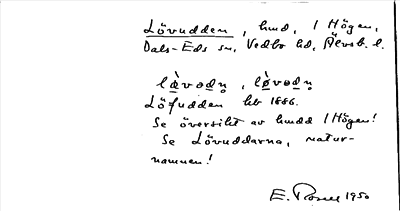 Lövudden, hmd, 1 Högen,
Dals-Eds sn, Vedbo hd, Älvsb. l.
lǣ̀vodṇ, lø̀vodṇ
Löfudden hb 1886.
Se översikt av hmdd 1 Högen!
Se Lövuddarna, natur-
namnen!
E. 1950